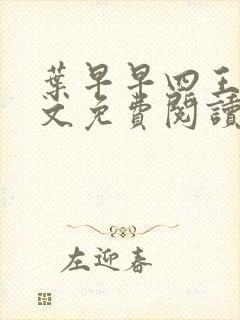 葉早早四王
文免費閱讀
左迎春